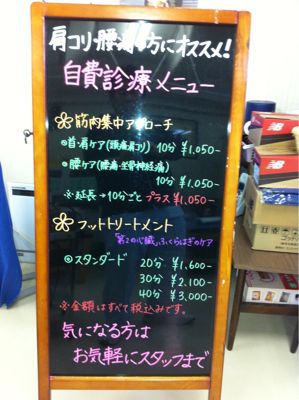 肩コリ・腰痛の方にオススメ!
自費診療メニュー
筋肉集中アプローチ
◎首・肩ケア(頭痛・肩コリ) 10分 ¥1,050-
◎腰ケア(腰痛・坐骨神経痛)
10分 ¥1,050-
※延長→10分ごと プラス¥1,050-
フットトリートメント
「第2の心臓」ふくらはぎのケア
◎スタンダード 20分 ¥1,600-
30分 ¥2,100-
40分 ¥3,000-
※金額はすべて税込みです。
気になる方は
お気軽にスタッフまで
new balance
new balance